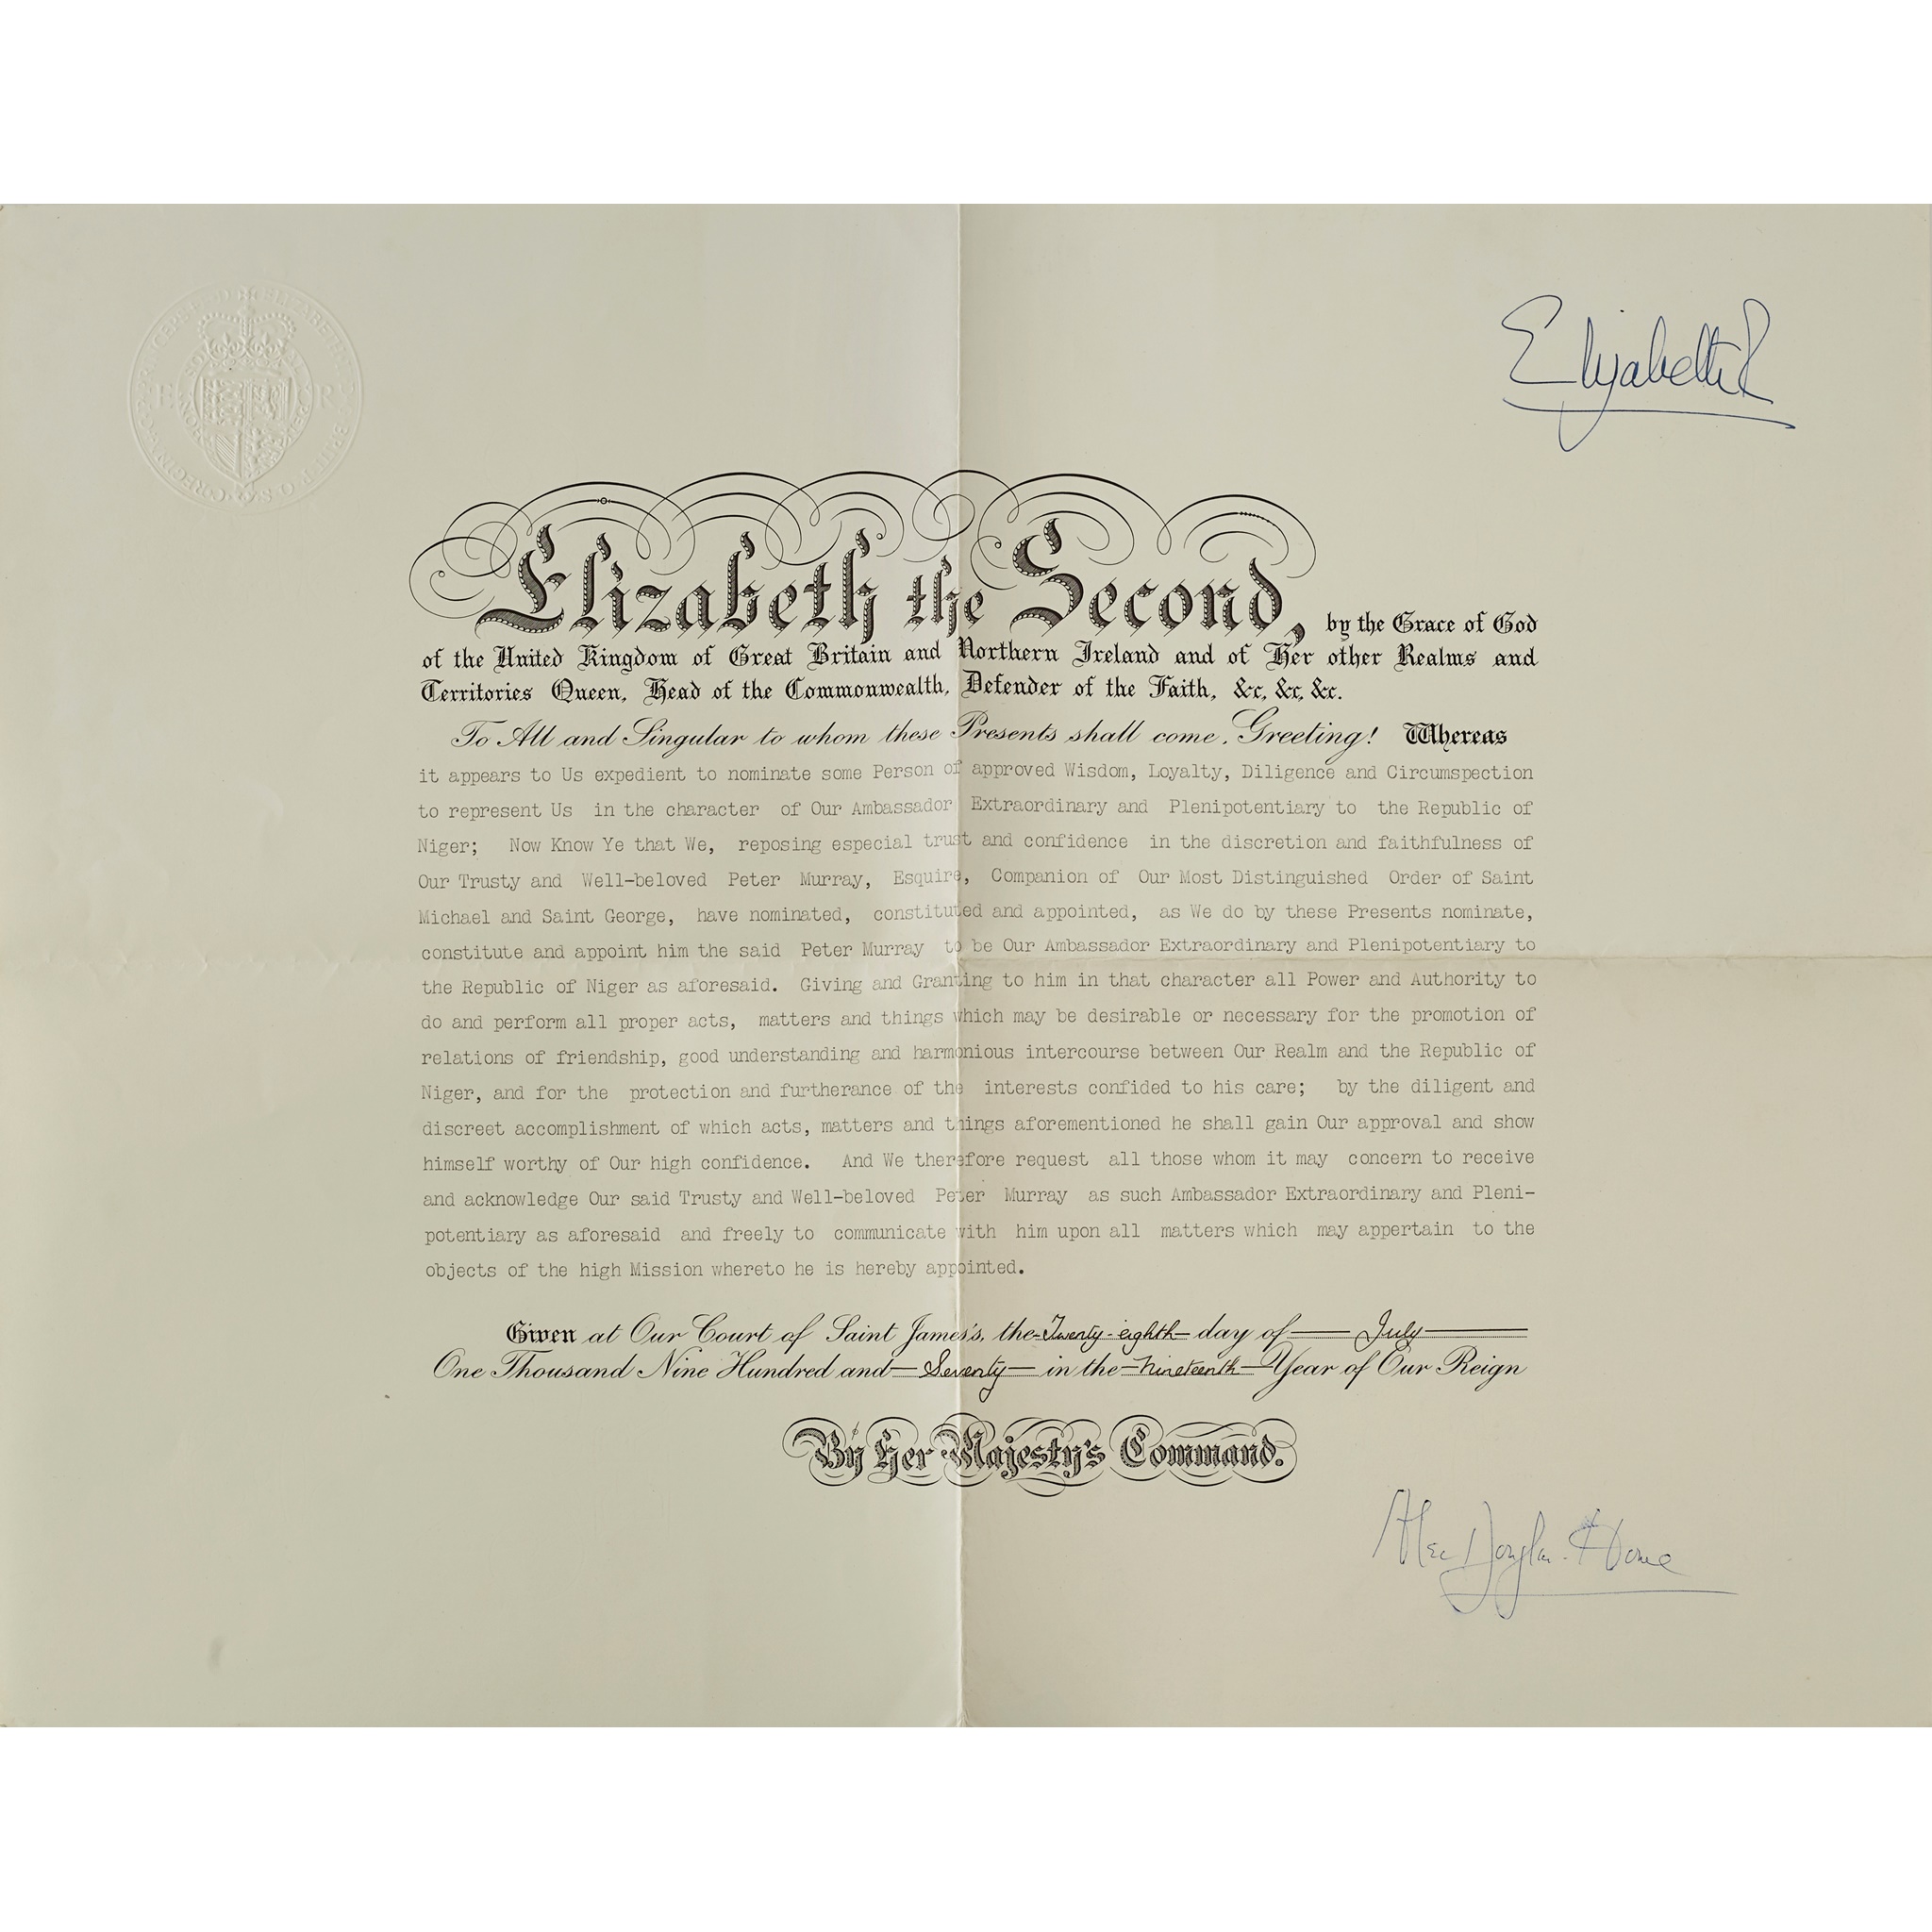 E R
Elizabeth R
Elizabeth the Second, by the Grace of God
of the United Kingdom of Great Britain and Northern Ireland and of Her other Realms and
Territories Queen, Head of the Commonwealth, Defender of the Faith, &c, &c, &c.
To All and Singular to whom these Presents shall come, Greeting! Whereas
it appears to Us expedient to nominate some Person of approved Wisdom, Loyalty, Diligence and Circumspection
to represent Us in the character of Our Ambassador Extraordinary and Plenipotentiary to the Republic of
Niger; Now Know Ye that We, reposing especial trust and confidence in the discretion and faithfulness of
Our Trusty and Well-beloved Peter Murray, Esquire, Companion of Our Most Distinguished Order of Saint
Michael and Saint George, have nominated, constituted and appointed, as We do by these Presents nominate,
constitute and appoint him the said Peter Murray to be Our Ambassador Extraordinary and Plenipotentiary to
the Republic of Niger as aforesaid. Giving and Granting to him in that character all Power and Authority to
do and perform all proper acts, matters and things which may be desirable or necessary for the promotion of
relations of friendship, good understanding and harmonious intercourse between Our Realm and the Republic of
Niger, and for the protection and furtherance of the interests confided to his care; by the diligent and
discreet accomplishment of which acts, matters and things aforementioned he shall gain Our approval and show
himself worthy of Our high confidence. And We therefore request all those whom it may concern to receive
and acknowledge Our said Trusty and Well-beloved Peter Murray as such Ambassador Extraordinary and Pleni-
potentiary as aforesaid and freely to communicate with him upon all matters which may appertain to the
objects of the high Mission whereto he is hereby appointed.
Given at Our Court of Saint James's, the Twenty-eighth day of July
One Thousand Nine Hundred and Seventy in the Nineteenth Year of Our Reign
By Her Majesty's Command.
Alec Douglas-Home